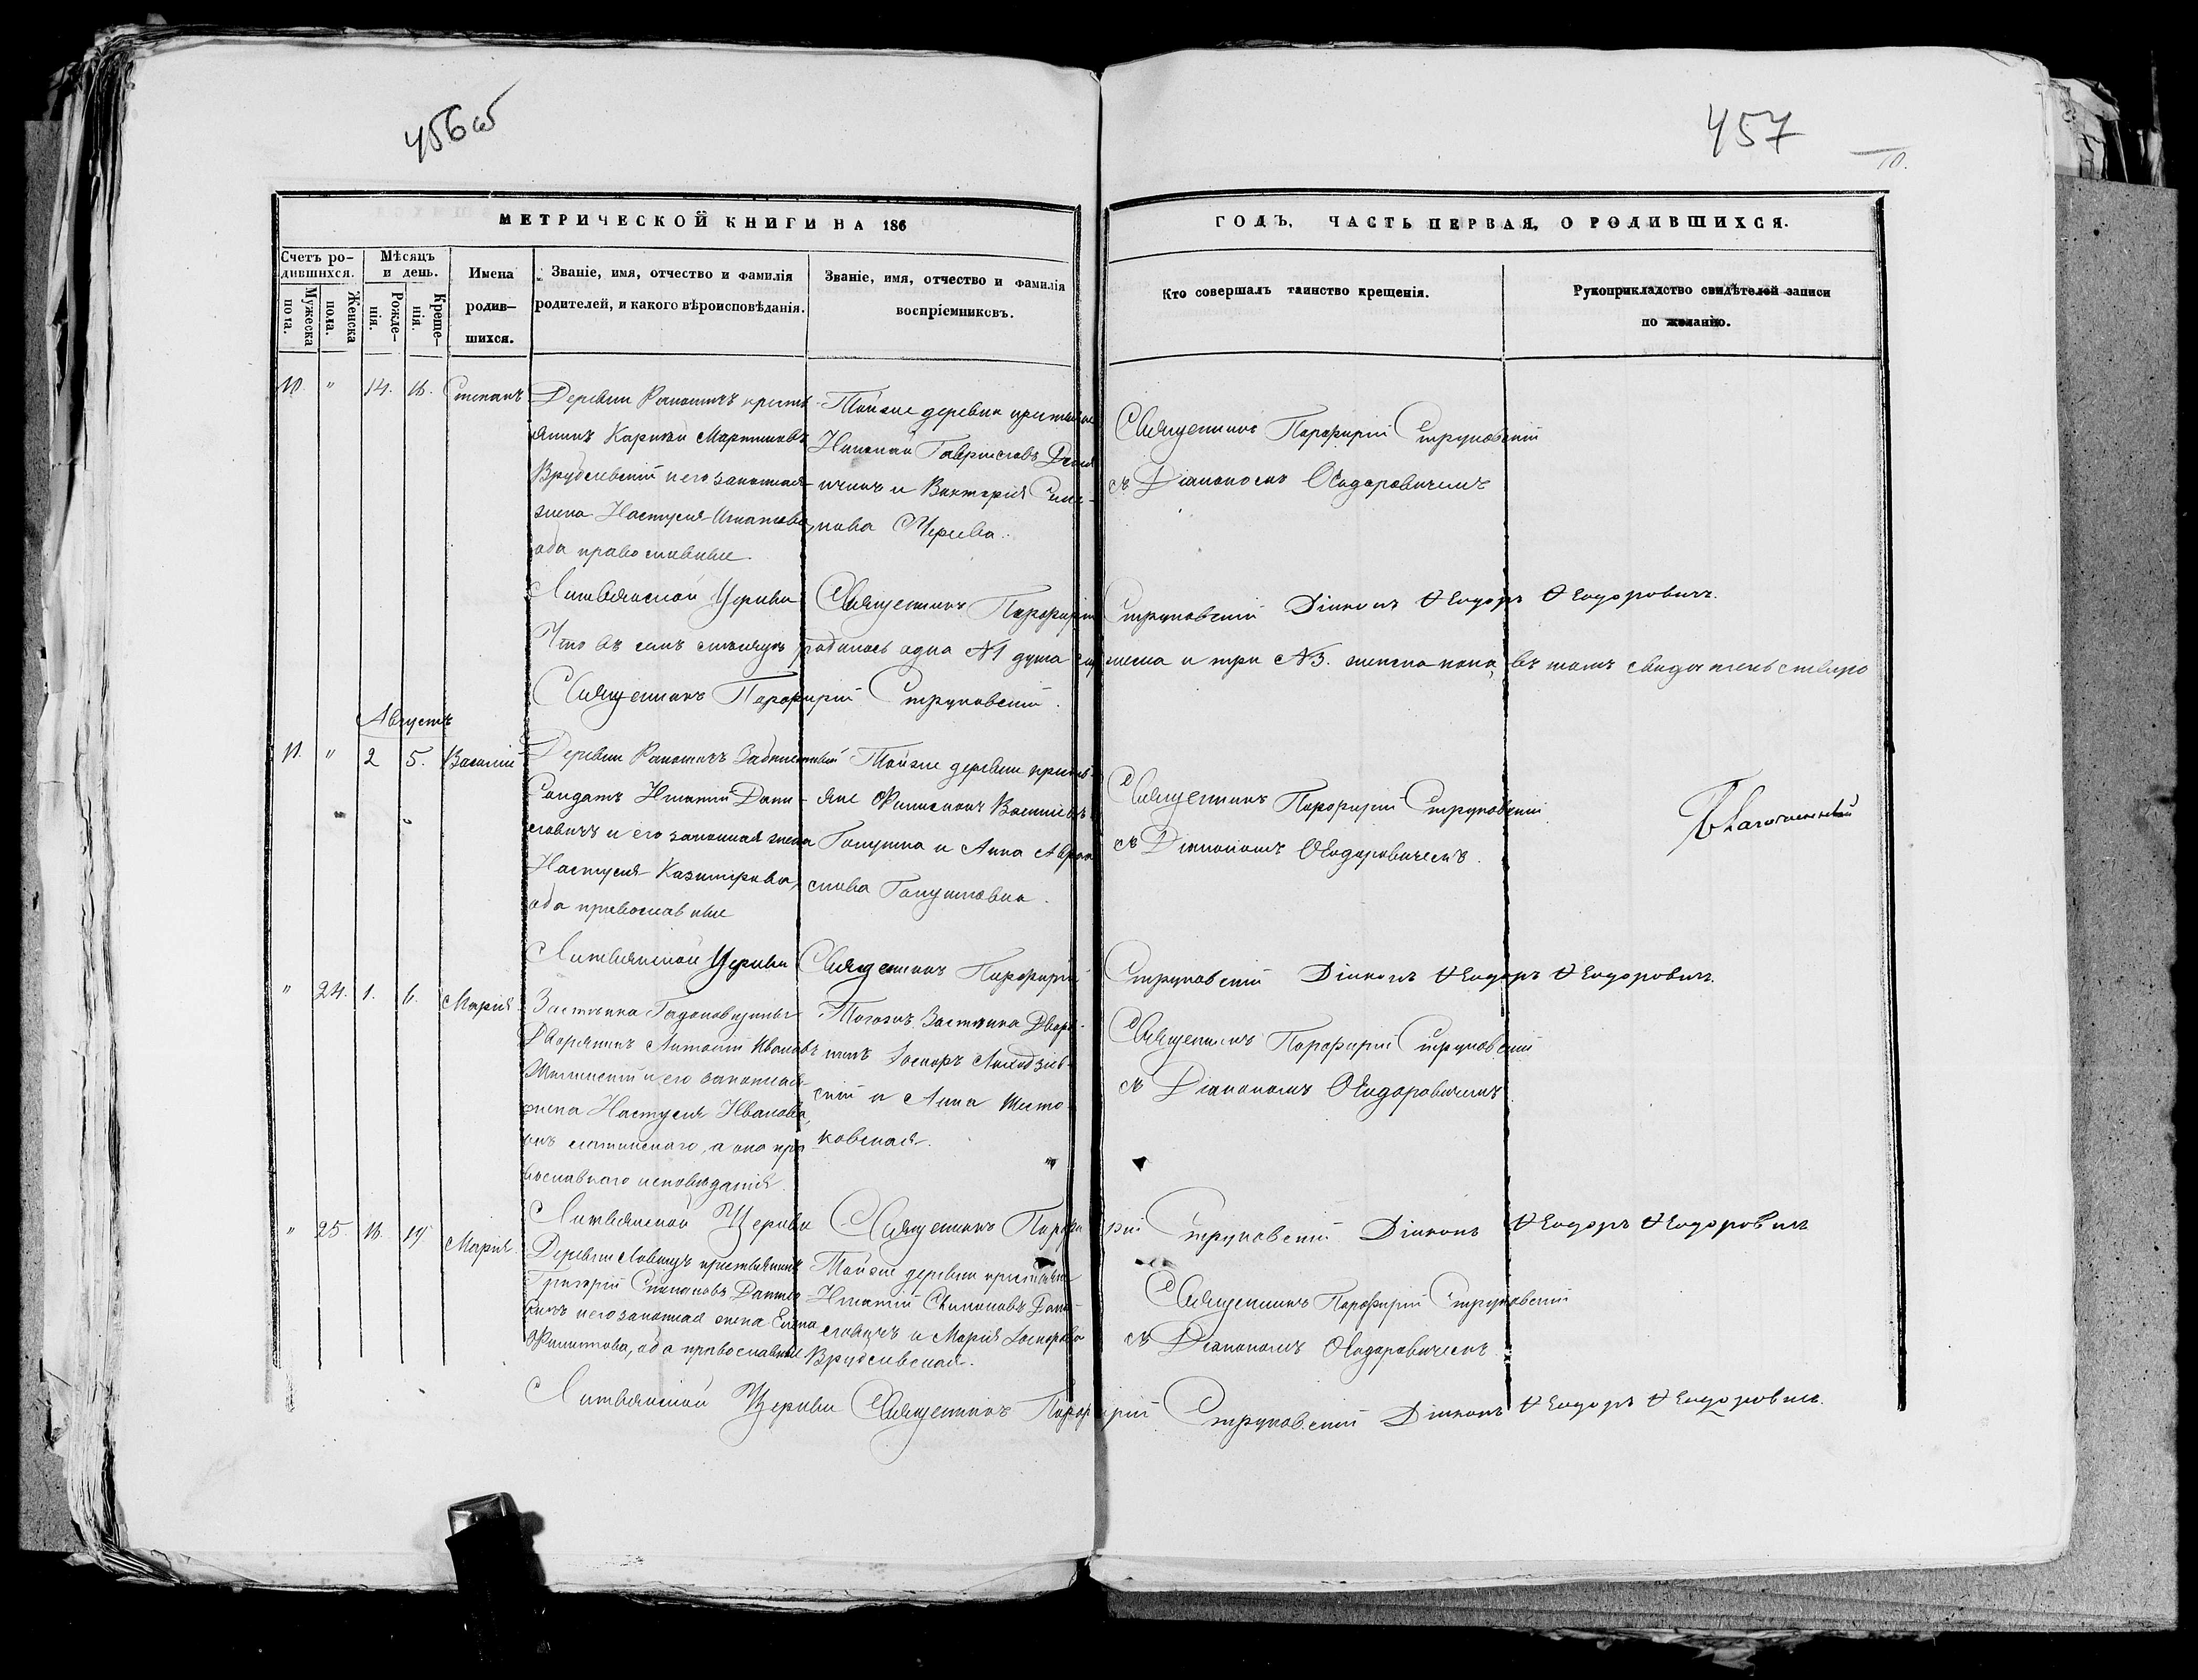 456об
457
10.
МЕТРИЧЕСКОЙ КНИГИ НА 186
ГОДЪ, ЧАСТЬ ПЕРВАЯ, О РОДИВШИХСЯ.
Счетъ ро-
дившихся.
Мужеска
пола.
Женска
пола.
Мѣсяцъ
и день.
Рожде-
нія.
Креще-
нія.
Имена
родив-
шихся.
Званіе, имя, отчество и фамилія
родителей, и какого вѣроисповѣданія.
Званіе, имя, отчество и фамилія
воспріемниковъ.
Кто совершалъ таинство крещенія.
Рукоприкладство свидѣтелей записи
по желанію.
10. " 14. 16. Степанъ
Деревни кресть
янинъ Мартиновъ
Врублевскій и его законная
жена Настусія Игнатова,
оба православные.
Тойже деревни крестьяне
Николай Гавриловъ
и Викторія
Священникъ Порфирій Струковскій
съ Діакономъ Ѳеодоровичемъ
Литвянской Церкви Священникъ Порфирій Струковскій Діаконъ Ѳеодоръ Ѳеодоровичъ.
Что въ семъ мѣсяцѣ родилось одна №1 душа мужеска и три №3. женска пола, въ томъ свидетельствую
Священникъ Порфирій Струковскій.
Августъ
11. " 2 5. Василій
Деревни
Солдатъ Игнатій Дани-
ловичъ и его законная жена
Настусія Казимірова,
оба православные
Тойже деревни кресть-
яне Васильевъ
Голушка и Анна
Голушкова.
Священникъ Порфирій Струковскій
съ Діакономъ Ѳеодоровичемъ.
Литвянской Церкви Священникъ Порфирій Струковскій Діаконъ Ѳеодоръ Ѳеодоровичъ.
" 24. 1. 6. Марія
Застѣнка
Дворянинъ Антоній Ивановъ
и его законная
жена Настусія Иванова,
онъ латинскаго, а она пра-
вославнаго исповѣданія.
Тогожъ Застѣнка Дворя-
нинъ
скій и Анна Шесто-
ковская.
Священникъ Порфирій Струковскій
съ Діакономъ Ѳеодоровичемъ
Литвянской Церкви Священникъ Порфирій Струковскій Діаконъ Ѳеодоръ Ѳеодоровичъ
" 25. 16. 19 Марія.
Деревни крестьянинъ
Григорій Степановъ
и его законная жена Елена
Филиппова, оба православные
Тойже деревни крестьяне
Игнатій Дани-
ловичъ и Марія
Врублевская.
Священникъ Порфирій Струковскій
съ Діакономъ Ѳеодоровичемъ
Литвянской Церкви Священникъ Порфирій Струковскій Діаконъ Ѳеодоръ Ѳеодоровичъ.